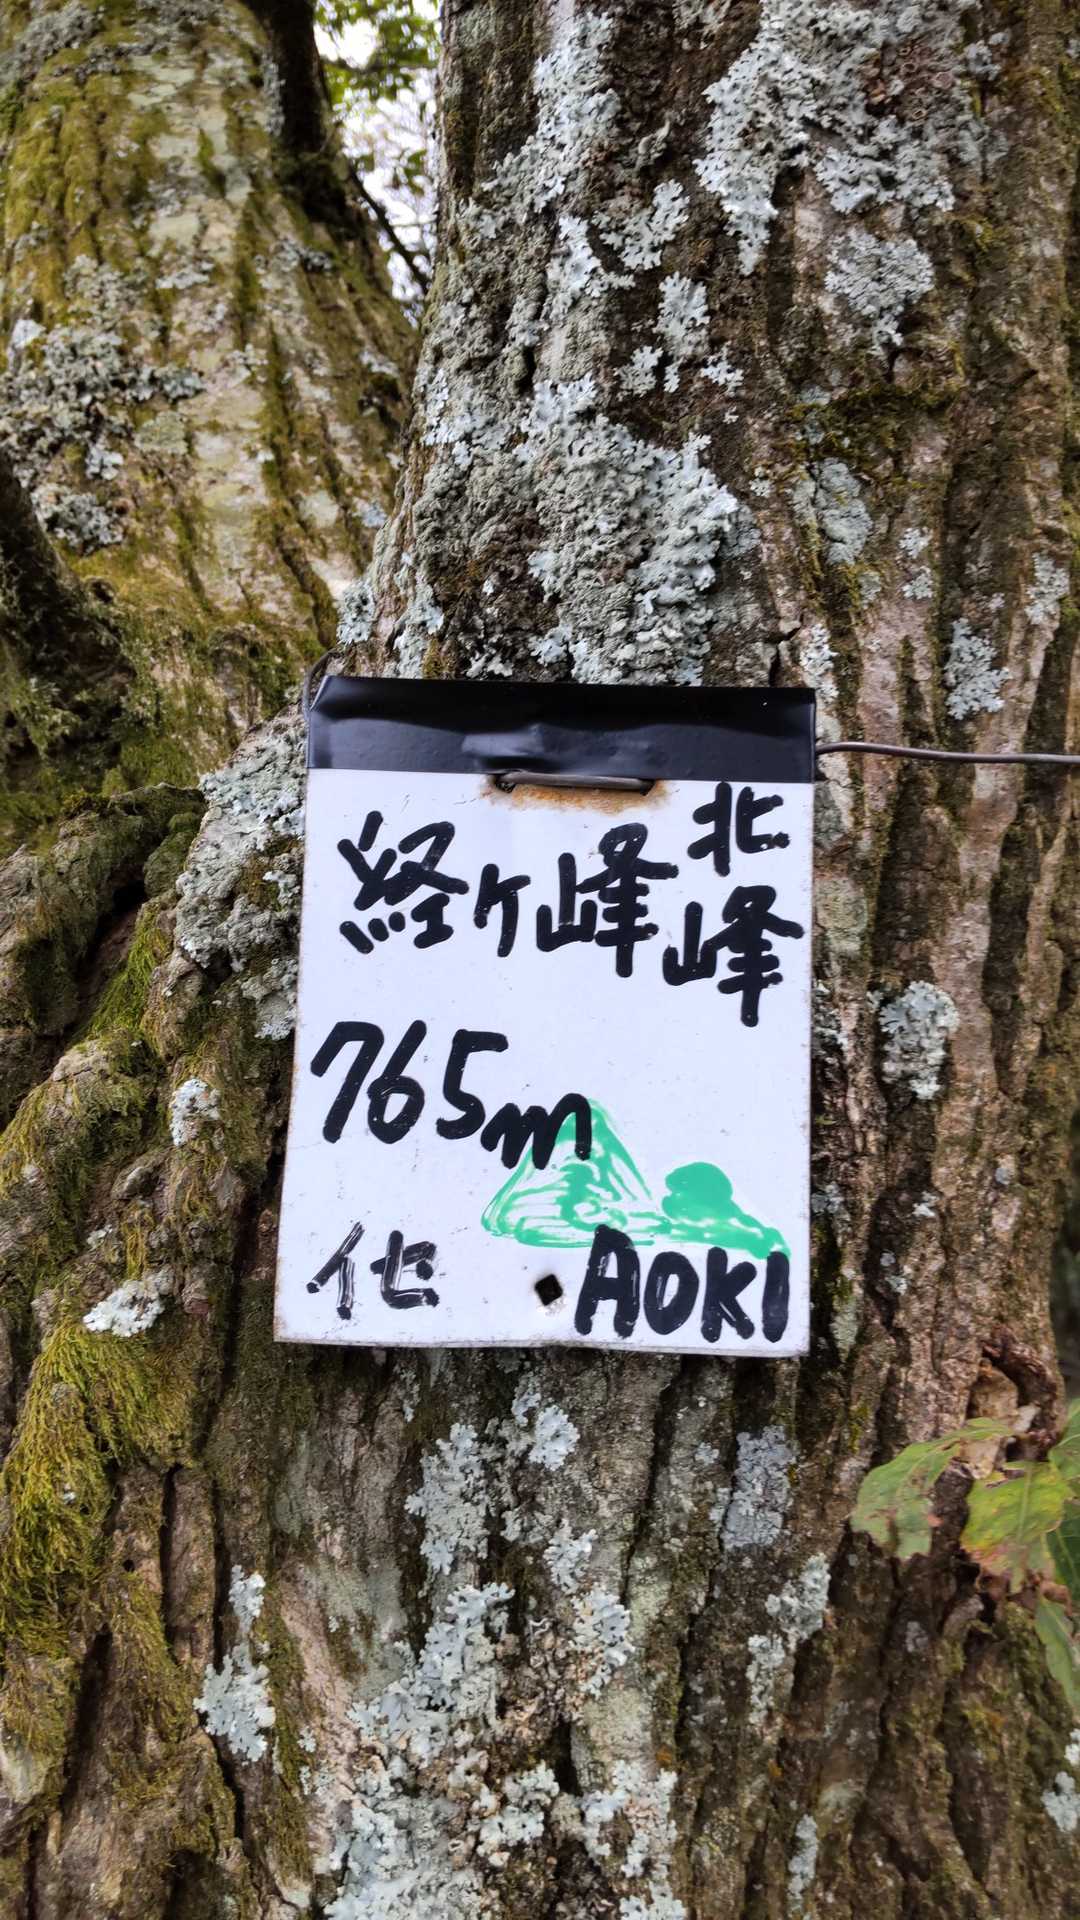 経ヶ峰北峰
765m
化 AOKI